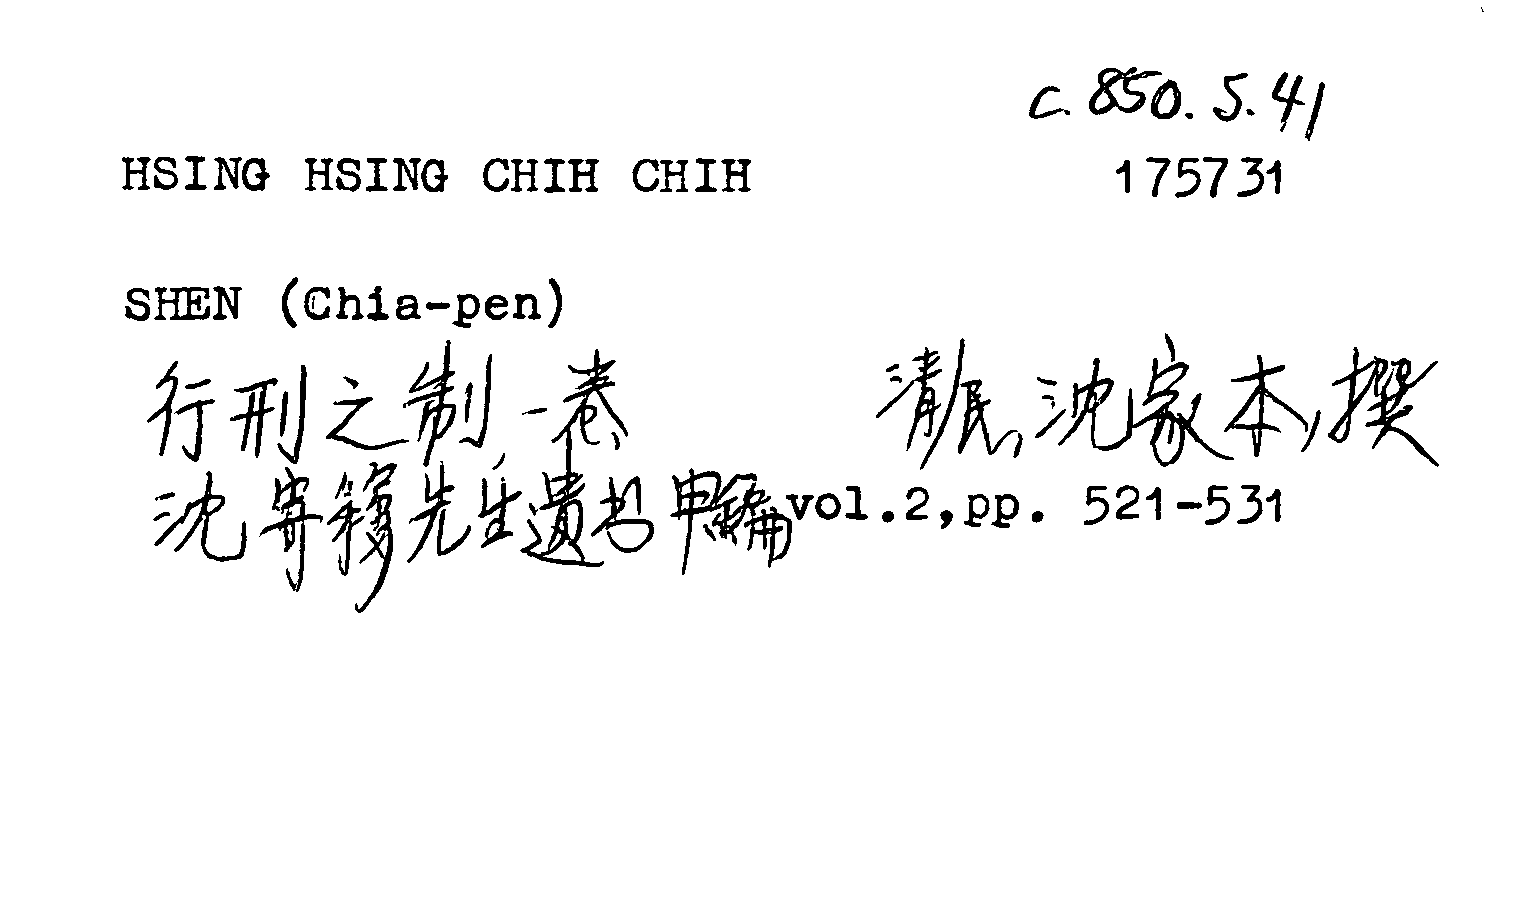 c.850.5.41
HSING HSING CHIH CHIH 175731
SHEN (Chia-pen)
行刑之制一卷 清民,沈家本,撰
沈寄簃先生遺书甲編 vol.2,pp. 521-531